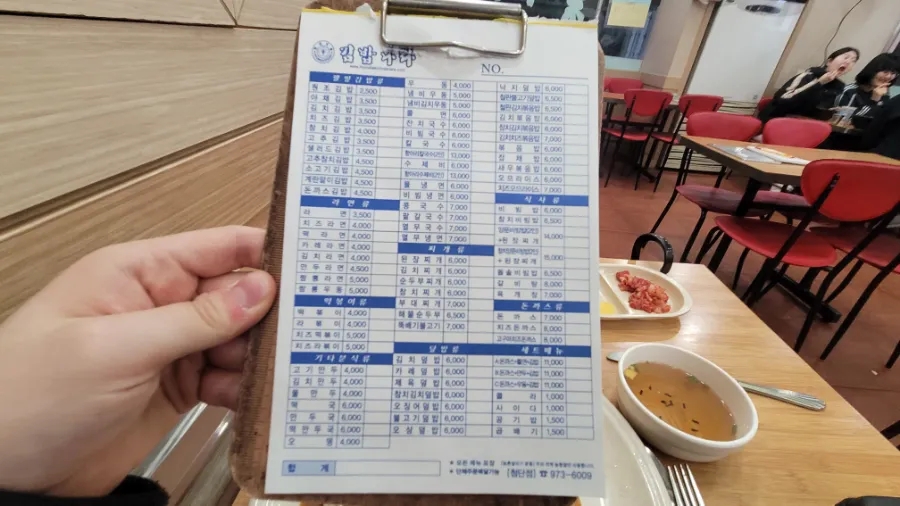 김밥나라
NO.
원조김밥 2,500
야채김밥 3,500
김치김밥 3,500
치즈김밥 3,500
참치김밥 4,000
고추김밥 3,500
샐러드김밥 3,500
고추참치김밥 4,500
소고기김밥 4,500
계란말이김밥 4,500
돈까스김밥 4,500
라면류
라면 3,500
치즈라면 4,000
떡라면 4,000
카레라면 4,000
김치라면 4,000
만두라면 4,500
짬뽕라면 5,000
짬뽕우동 5,000
떡볶이류
떡볶이 4,000
라볶이 4,000
치즈떡볶이 5,000
치즈라볶이 5,000
기타분식류
고기만두 4,000
김치만두 4,000
물만두 4,000
떡국 6,000
만두국 6,000
떡만두국 6,000
오뎅 4,000
합계
우동 4,000
냄비우동 5,000
냄비김치우동 5,000
쫄면 6,000
잔치국수 6,000
비빔국수 6,000
칼국수 6,000
수제비 6,000
물냉면 6,000
비빔냉면 6,000
콩국수 7,000
팥칼국수 7,000
열무국수 7,000
열무냉면 7,000
찌개류
된장찌개 6,000
김치찌개 6,000
순두부찌개 6,000
참치찌개 6,000
부대찌개 7,000
해물순두부 6,500
뚝배기불고기 7,000
덮밥류
김치덮밥 6,000
카레덮밥 6,000
제육덮밥 6,000
참치김치덮밥 6,000
오징어덮밥 6,000
불고기덮밥 6,000
오삼덮밥 6,000
낙지덮밥 6,000
김치볶음밥 6,000
참치김치볶음밥 6,500
김치치즈볶음밥 7,000
볶음밥 6,000
잡채밥 6,000
새우볶음밥 6,000
오므라이스 6,000
치즈오므라이스 7,000
식사류
비빔밥 6,000
참치비빔밥 6,500
+된장찌개 14,000
+된장찌개 15,000
돌솥비빔밥 6,500
갈비탕 8,000
육개장 7,000
돈까스류
돈까스 7,000
치즈돈까스 8,000
고구마치즈돈까스 8,000
세트메뉴
콜라 1,000
사이다 1,000
공기밥 1,000
곱빼기 1,500
★ 모든 메뉴 포장
★ 단체주문배달가능 [첨단점] ☎ 973-6009